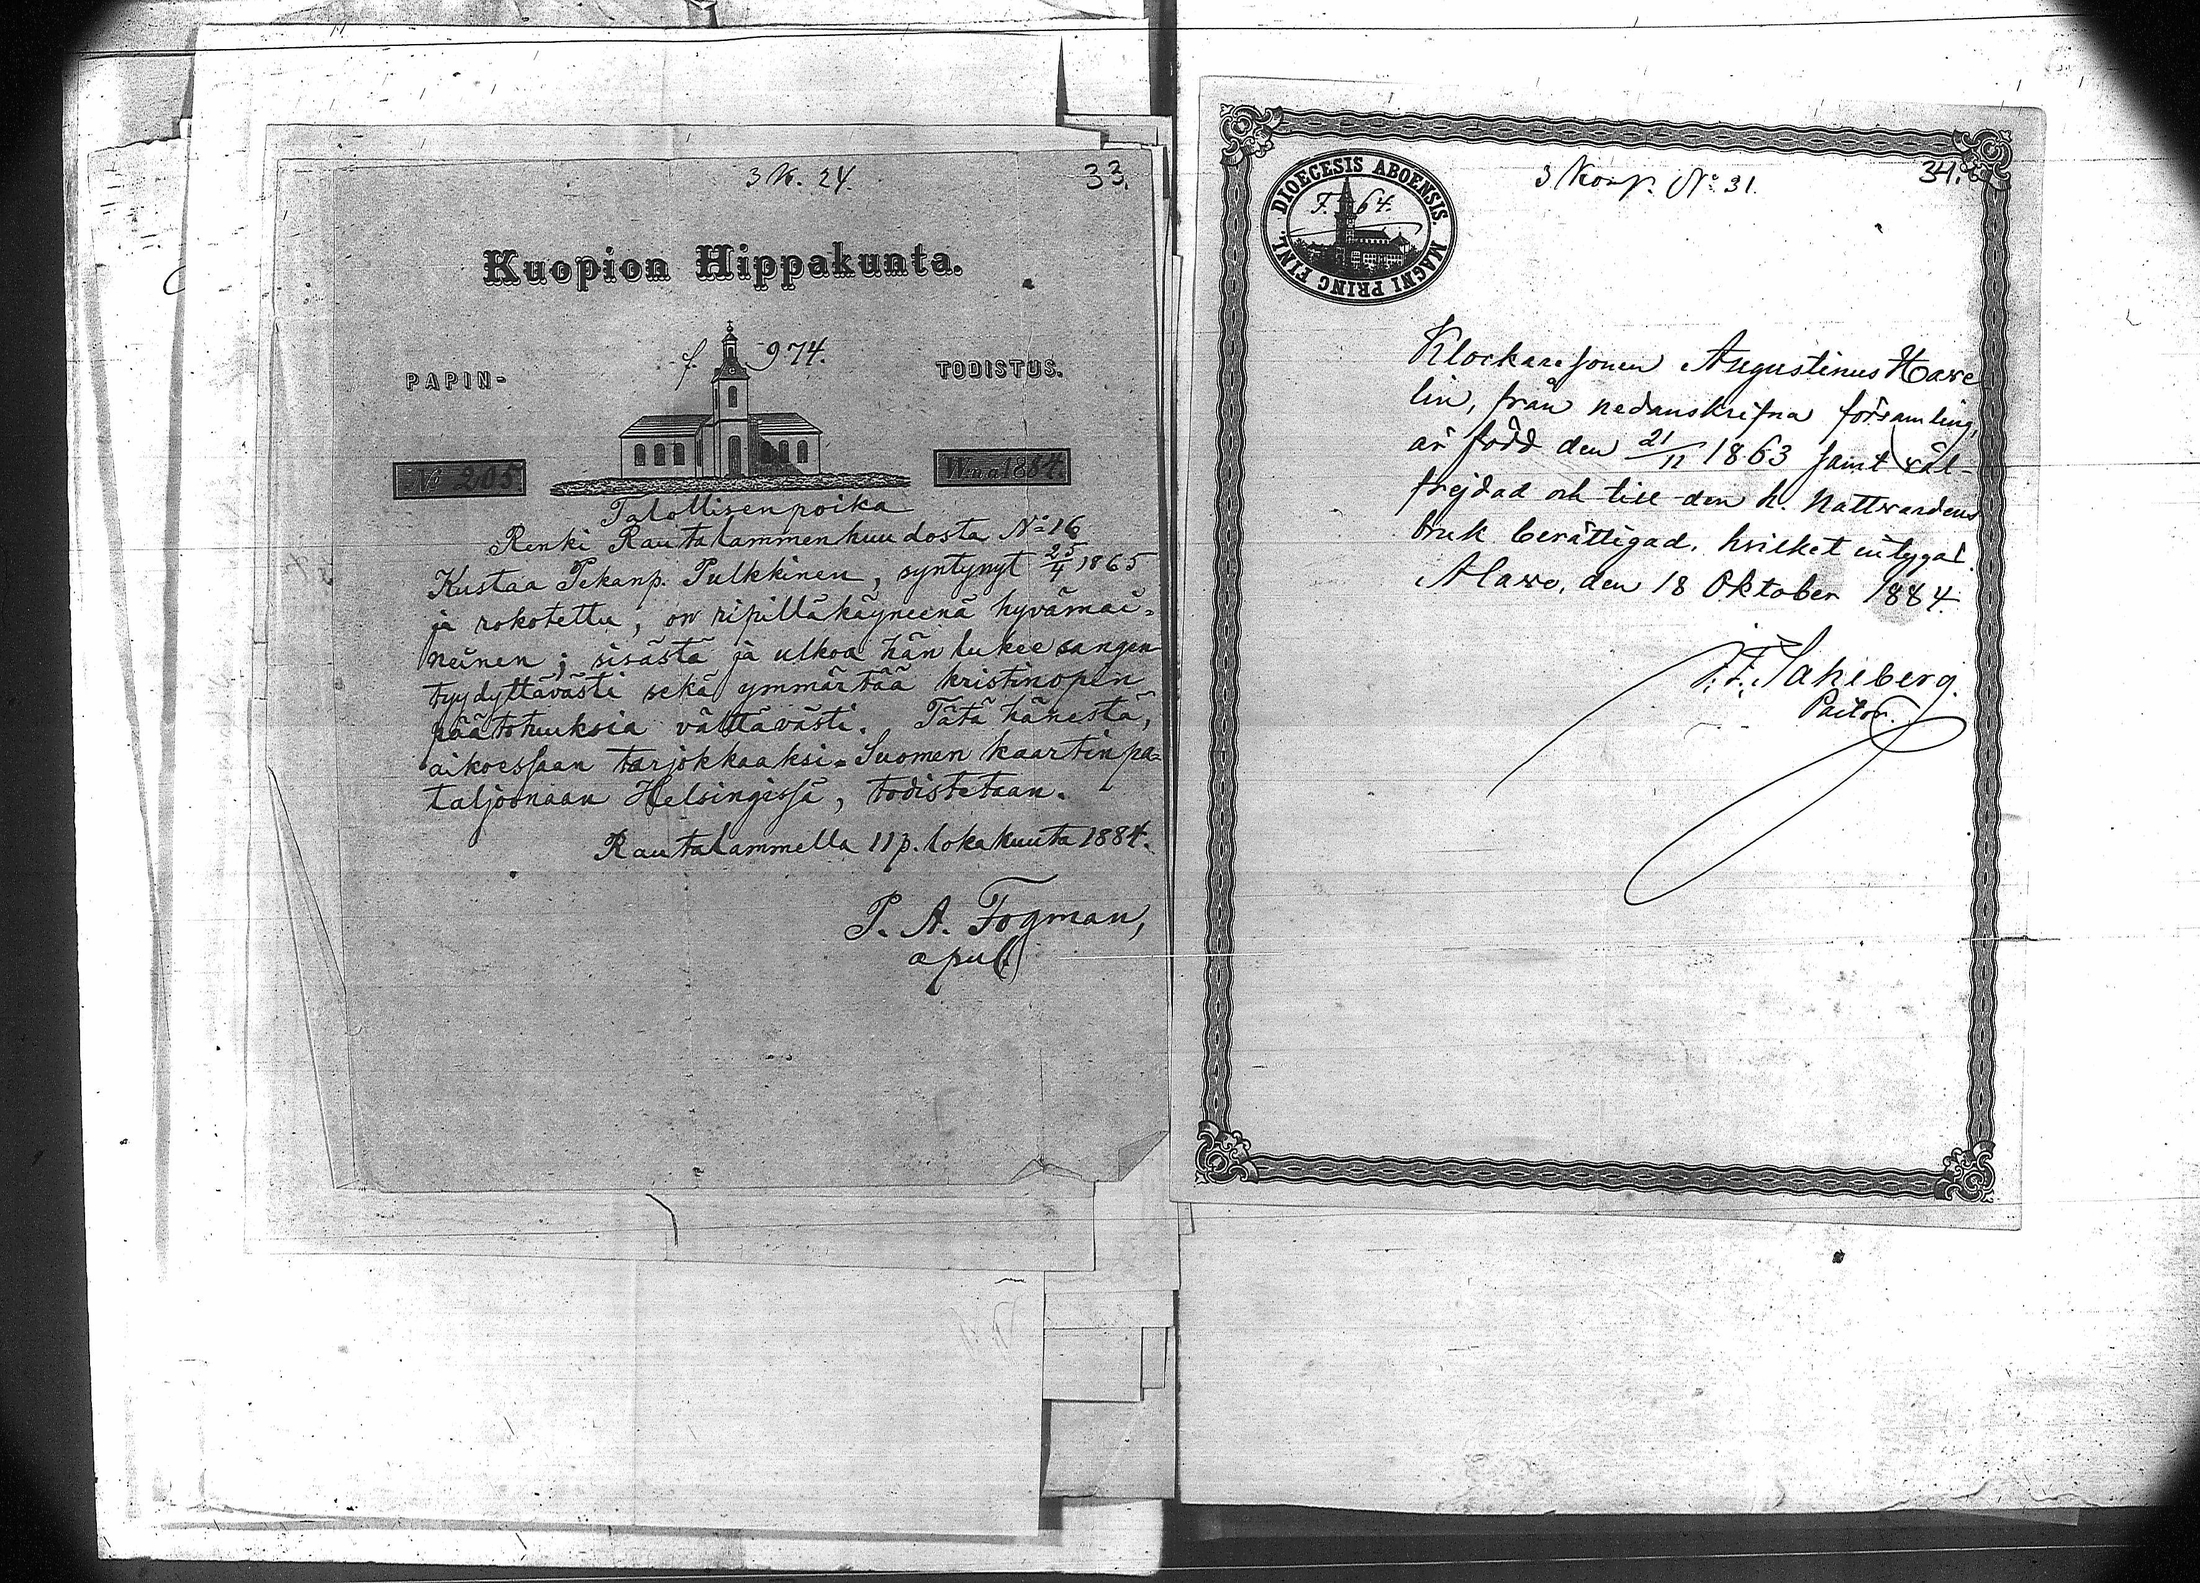 3 K. 24.
33.
Kuopion Hippakunta.
f. 974.
PAPIN-
TODISTUS.
No 205
Wna 1884.
Talollisenpoika
Renki Rautalammenkuudosta No 16
Kustaa Pekanp. Pulkkinen, syntynyt 25/4 1865
ja rokotettu, on ripilläkäyneenä hyvämai-
neinen; sisästä ja ulkoa hän lukee sangen
tyydyttävästi sekä ymmärtää kristinopin
päätotuuksia välttävästi. Tätä hänestä,
aikoessaan tarjokkaaksi Suomen kaartin pa-
taljoonaan Helsingissä, todistetaan.
Rautalammella 11 p. lokakuuta 1884.
P. A. Fogman,
apul.
3 Komp. No 31.
34.
DIOECESIS ABOENSIS. MAGNI PRINC FINL.
F. 64.
Klockaresonen Augustinus Have
lin, från nedanskrifna församling,
är född den 21/11 1863 samt väl-
frejdad och till den h. Nattvardens
bruk berättigad, hvilket intygar.
Alavo, den 18 Oktober 1884.
F. Sahlberg.
Pastor.